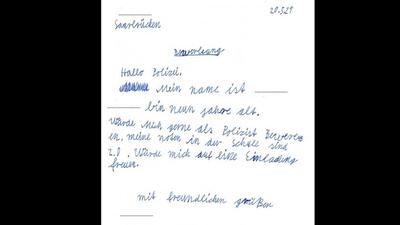 20.5.21
Saarbrücken
Hallo Polizei.
Mein name ist
bin neun jahre alt.
Würde Mich gerne als Polizist
en, meine noten in der Schule sind
Würde mich auf eine Einladung
freuen.
mit freundlichen grüßen